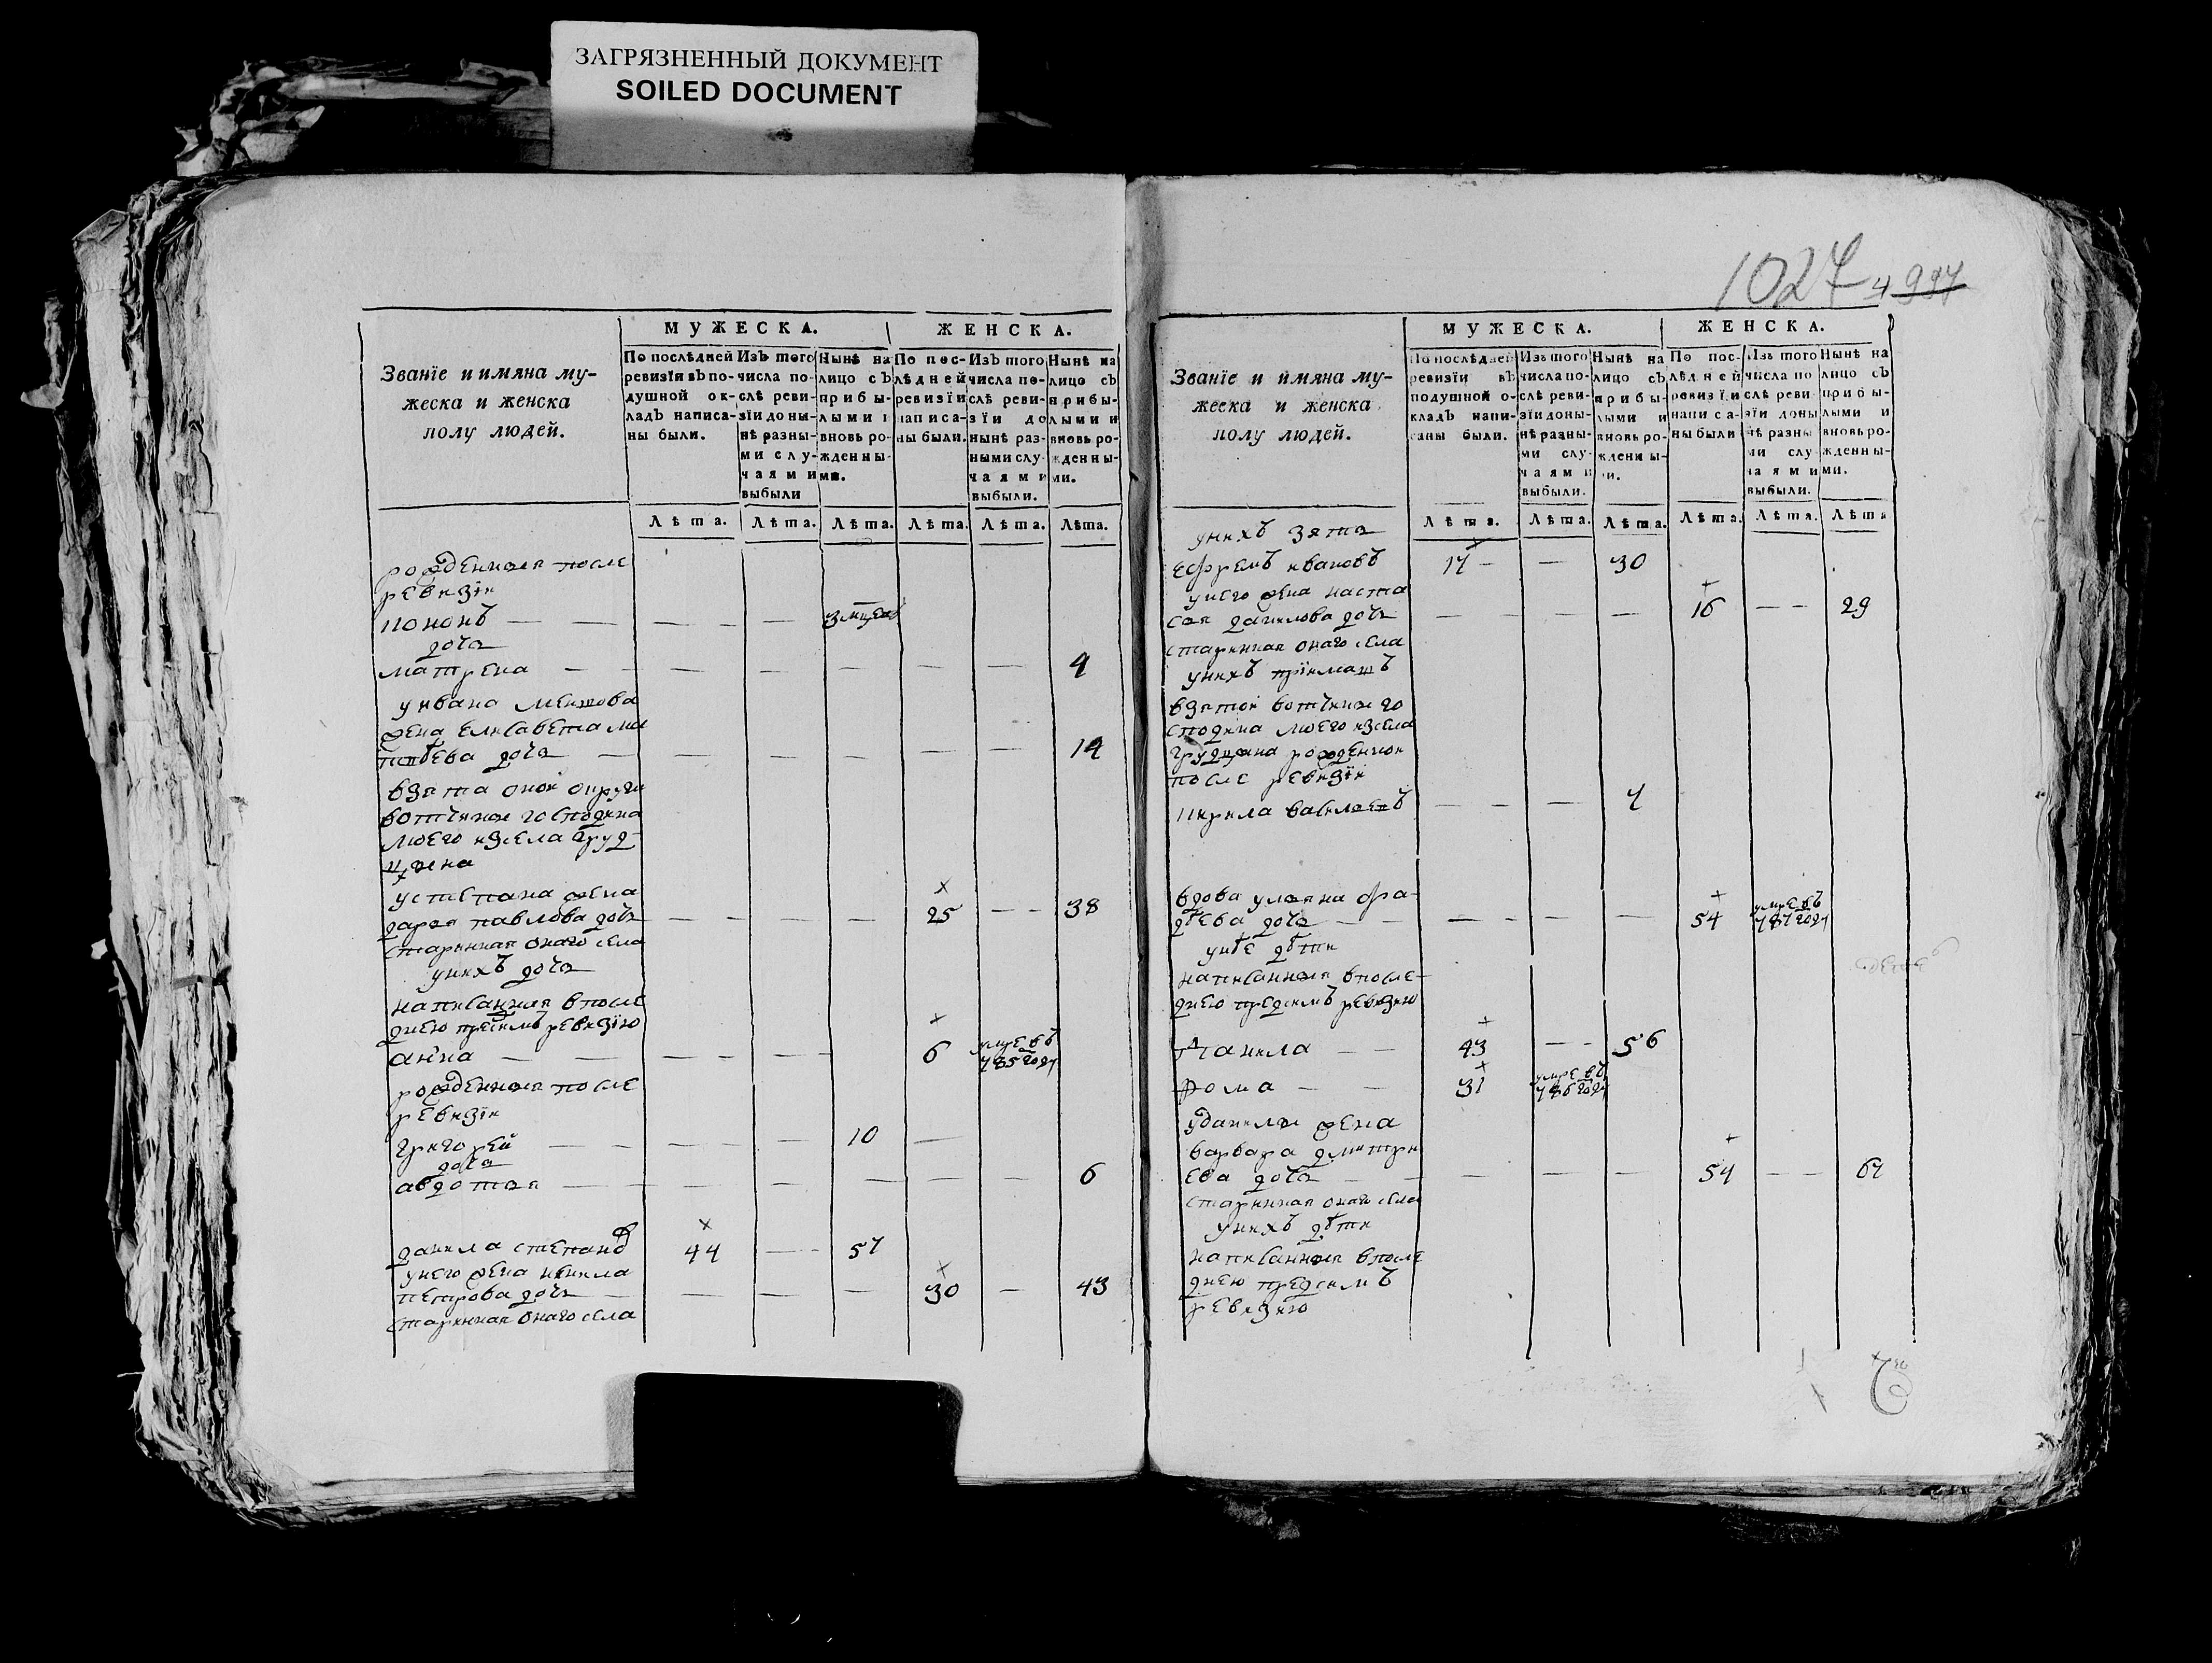 ЗАГРЯЗНЕННЫЙ ДОКУМЕНТ
SOILED DOCUMENT
1027
997
Званїе и имяна му-
жеска и женска
полу людей.
МУЖЕСКА.
ЖЕНСКА.
По послѣдней
ревизїи въ по-
душной ок-
ладъ написа-
ны были.
Изъ того
числа по-
слѣ реви-
зїи до ны-
нѣ разны-
ми слу-
чаями
выбыли
Нынѣ на
лицо съ
прибы-
лыми и
вновь ро-
жденны-
ми.
По пос-
лѣдней
ревизїи
написа-
ны были.
Изъ того
числа по-
слѣ реви-
зїи до
нынѣ раз-
ными слу-
чаями
выбыли.
Нынѣ на
лицо съ
прибы-
лыми и
вновь ро-
жденны-
ми.
Лѣта. Лѣта. Лѣта. Лѣта. Лѣта. Лѣта.
рожденныя после
ревизїи
дочь
матрена — — — — — — 4
у ивана меншова
жена елисавета
дочь — — — — — — 14
взята оной округи
вотчины господина
моего изсела груд
цына
устепана жена
дарья павлова дочь — — — 25 — 38
старинная онаго села
унихъ дочь
написанная впосле
днею предсимъ ревизїю
анна — — — — 6 умре въ
785 году
рожденныя после
ревизїи
григорей — — — 10 —
дочь
авдотья — — — — — — 6
данила степановъ 44 — 57
унего жена
петрова дочь — — — 30 — 43
старинная онаго села
Званїе и имяна му-
жеска и женска
полу людей.
МУЖЕСКА.
ЖЕНСКА.
По послѣдней
ревизїи въ
подушной о-
кладъ напи-
саны были.
Изъ того
числа по-
слѣ реви-
зїи до ны-
нѣ разны-
ми слу-
чаями
выбыли.
Нынѣ на
лицо съ
прибы-
лыми и
вновь ро-
жденны-
ми.
По пос-
лѣдней
ревизїи
написа-
ны были
Изъ того
числа по
слѣ реви-
зїи до ны
нѣ разны
ми слу
чаями
выбыли.
Нынѣ на
лицо съ
прибы-
лыми и
вновь ро-
жденны-
ми.
Лѣта. Лѣта. Лѣта. Лѣта. Лѣта. Лѣта
унихъ зять
ефремъ ивановъ 17 — — 30
унего жена наста
сья данилова дочь — — — 16 — — 29
старинная онаго села
унихъ прїимышъ
взятой вотчины го
сподина моего изсела
грудцына рожденной
после ревизїи
кирила васильевъ — — — 7
вдова ульяна фа-
дѣева дочь — — — — 54 умре въ
787 году
унѣе дѣти
написанныя впосле-
днею предсимъ ревизию
Данила — — 43 — — 56
Фома — — 31 умре въ
786 году
уданилы жена
варвара дмитри
ева дочь — — — 54 — — 67
старинная онаго села
унихъ дѣти
написанныя впосле
днею предсимъ
ревизию